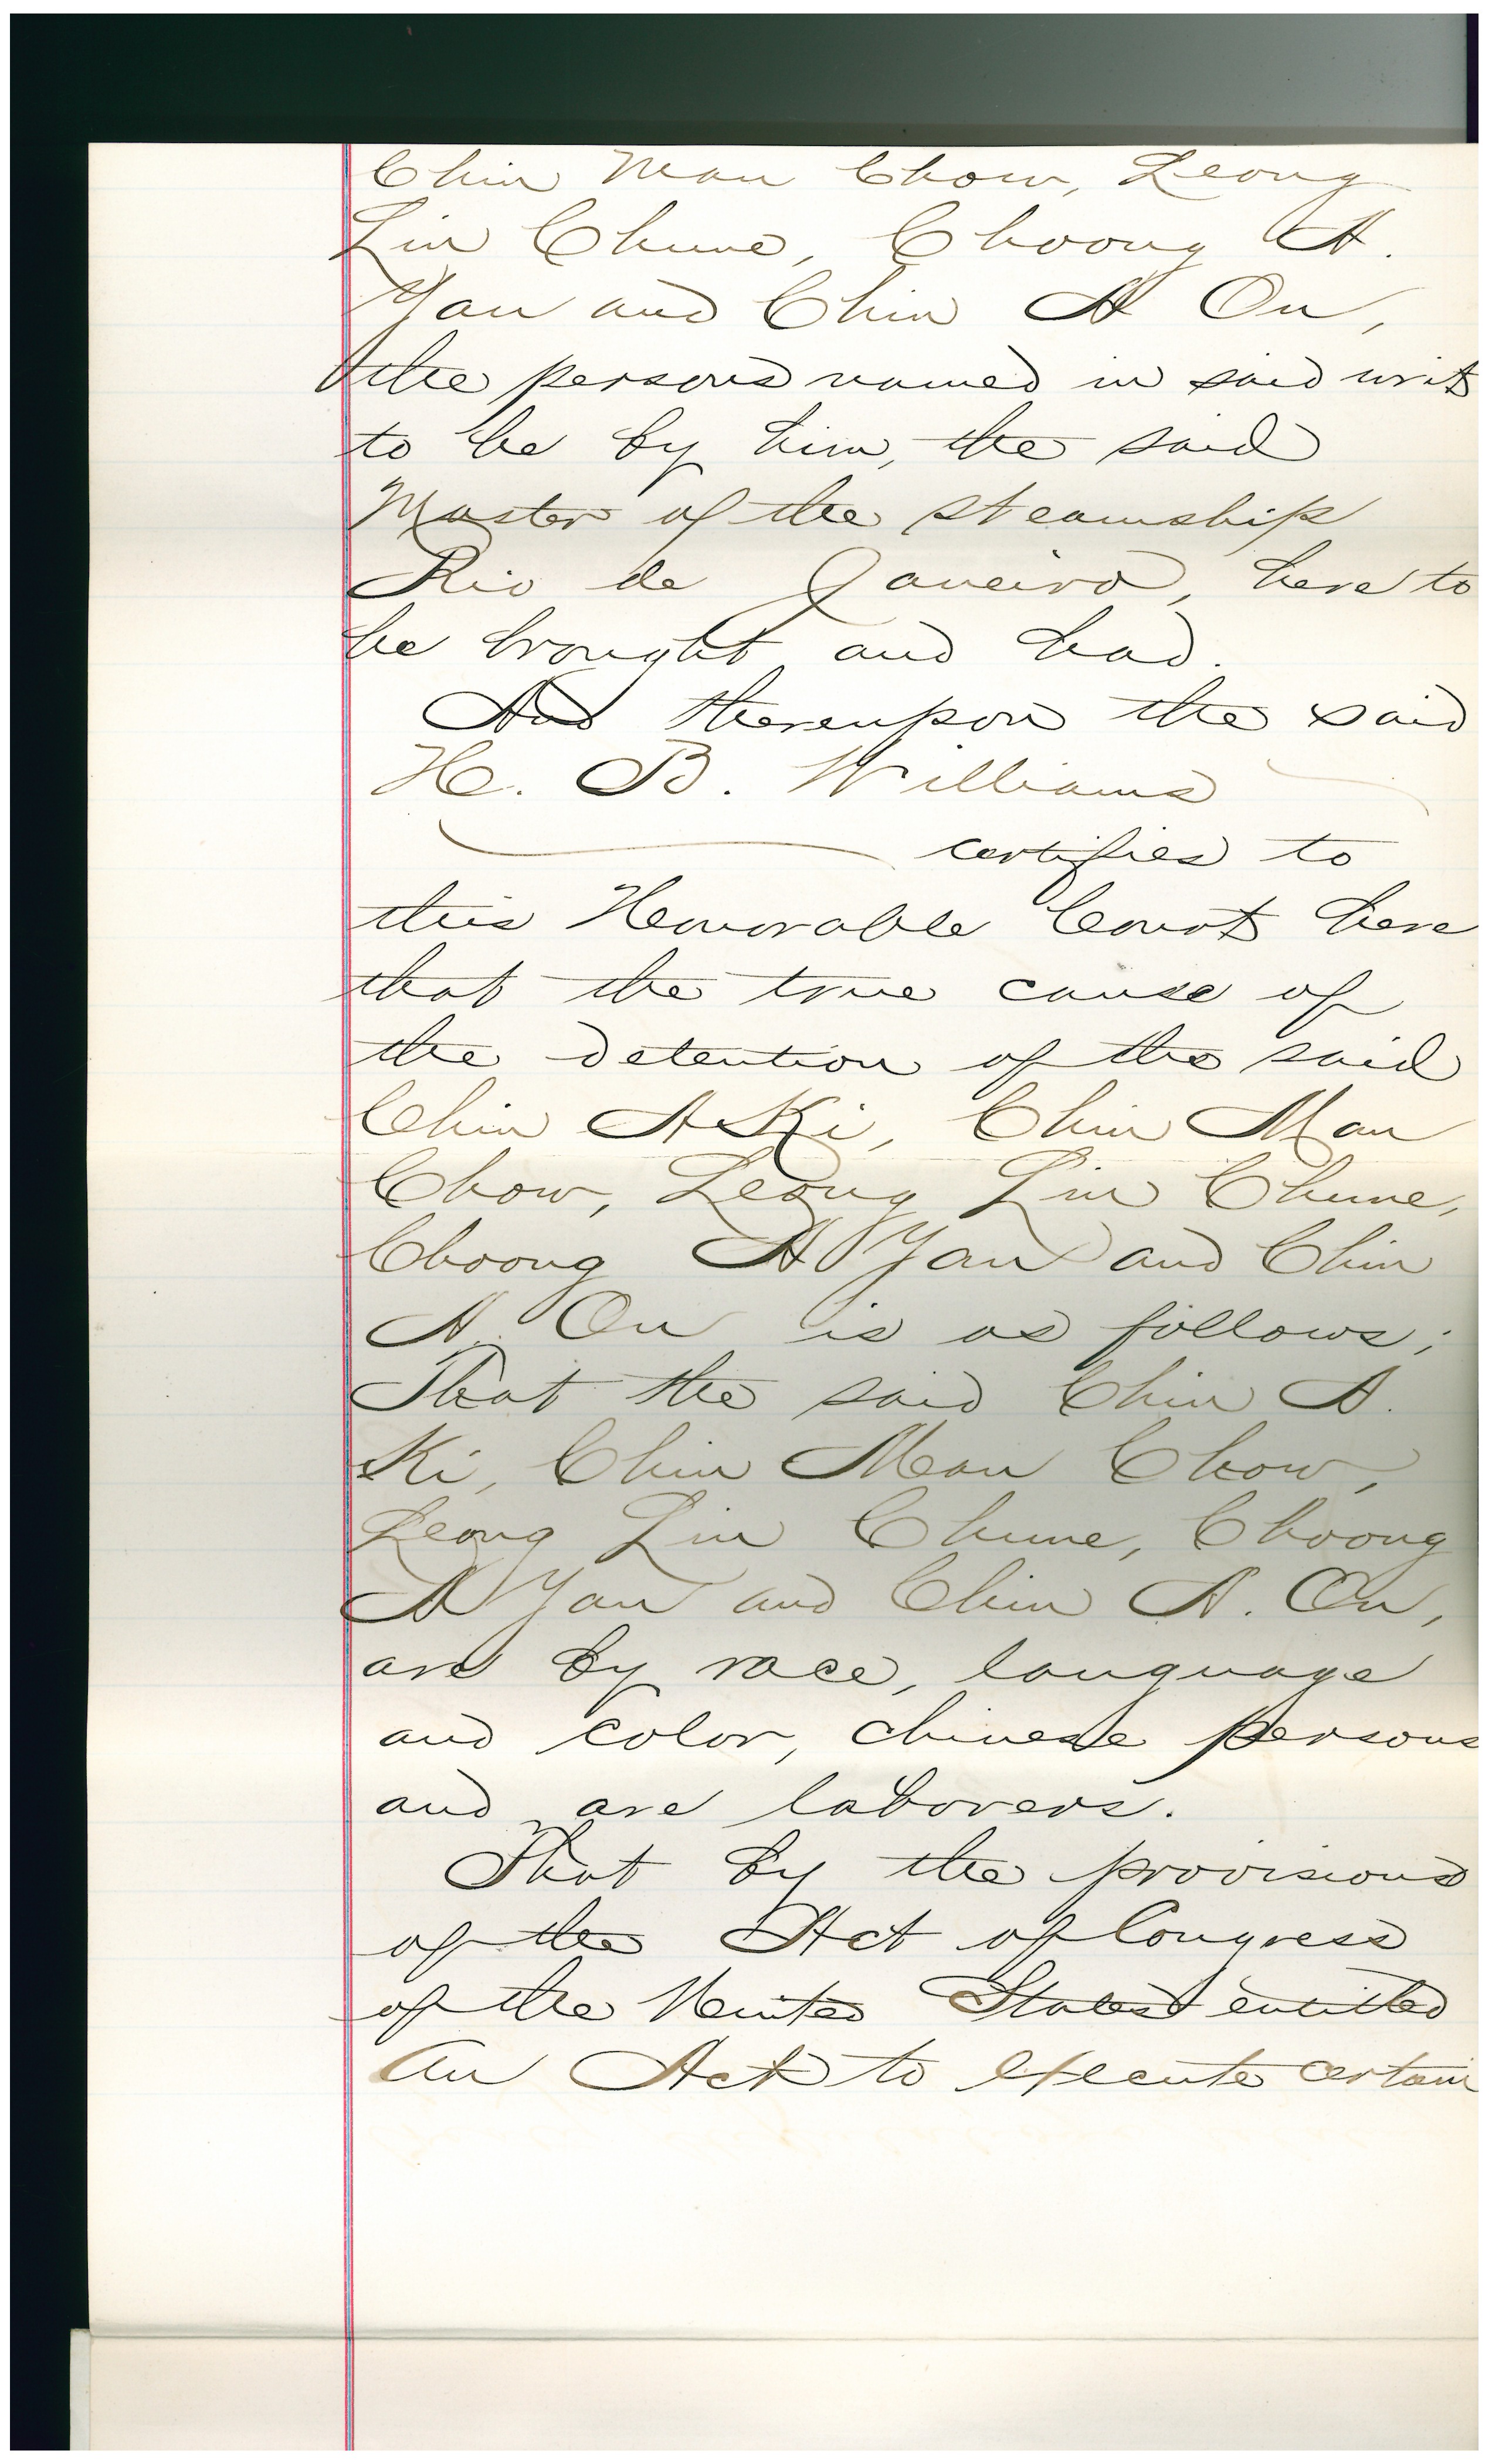 Chin Man Chow, Leong
Lin Chune, Choong A.
Yan and Chin A On,
the persons named in said writ
to be by him, the said
Master of the steamship
Rio de Janeiro, here to
be brought and had.
And thereupon the said
H. B. Williams
certifies to
this Honorable Court here
that the true cause of
the detention of the said
Chin A Ki, Chin Man
Chow, Leong Lin Chune,
Choong A Yan and Chin
A. On is as follows;
That the said Chin A.
Ki, Chin Man Chow,
Leong Lin Chune, Choong
A Yan and Chin A. On,
are by race, language
and color, chinese persons
and are laborers.
That by the provisions
of the Act of Congress
of the United States entitled
An Act to execute certain